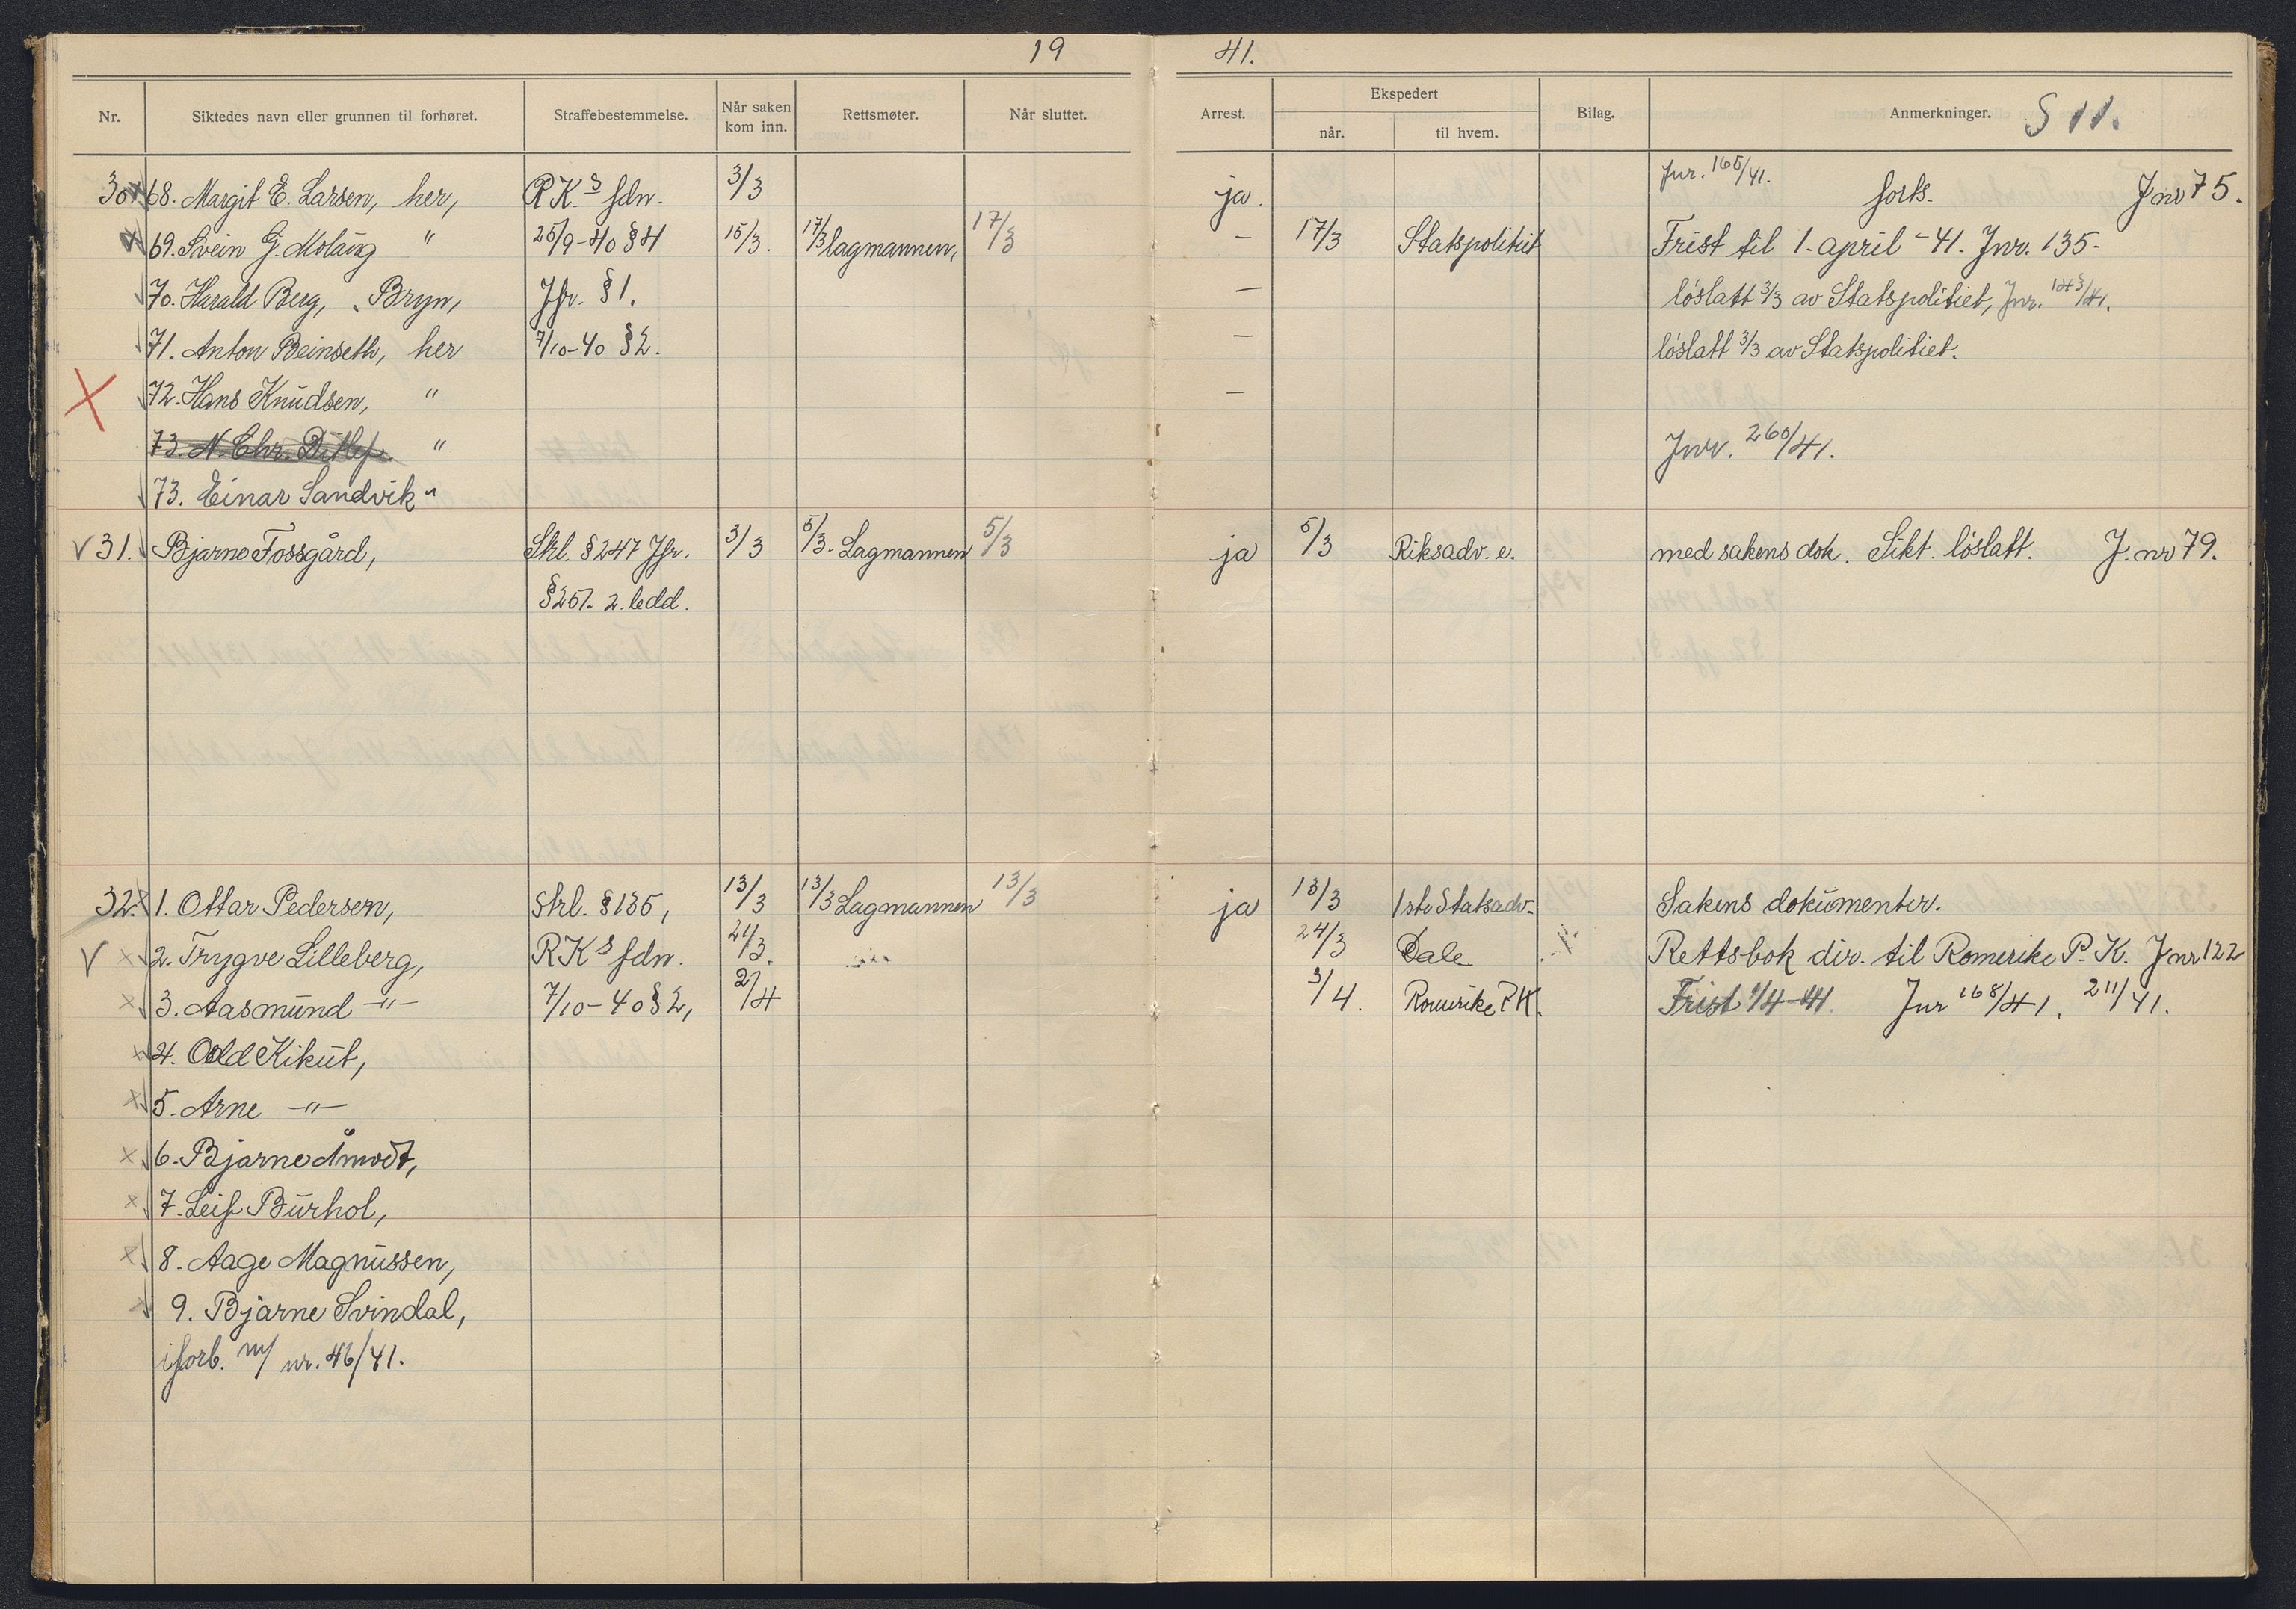 19 41.
Nr. Siktedes navn eller grunnen til forhøret. Straffebestemmelse. Når saken kom inn. Rettsmøter. Når sluttet. Arrest. Ekspedert når. til hvem. Bilag. Anmerkninger. S 11.
Jnr. 165/41.
30 68. Margit E. Larsen, her, R.K.s fdn. 3/3 ja. forts. J nr 75.
69. Svein G. Molaug " 25/9-40 § 4 15/3. 17/3 lagmannen, 17/3 — 17/3 Statspolitiet Frist til 1. april - 41. Jnr. 135-
70. Harald Berg, Bryn, Jfr. § 1. — løslatt 3/3 av Statspolitiet, Jnr. 143/41.
71. Anton Reinseth, her 7/10-40 § 2. — løslatt 3/3 av Statspolitiet.
72. Hans Knudsen, " —
73. N. Chr. Ditlef. " Jnr. 260/41.
73. Einar Sandvik "
V 31. Bjarne Fossgård, Strl. § 247 Jfr. 3/3 5/3. Lagmannen 5/3 ja 5/3 Riksadv. e. med sakens dok. Sikt. løslatt. J. nr 79.
§ 251. 2. ledd.
32. 1. Ottar Pedersen, Strl. § 135, 13/3 13/3 Lagmannen 13/3 ja 13/3 1ste Statsadv. Sakens dokumenter.
V 2. Trygve Lilleberg, R.K.s fdn. 21/3. 24/3 Dale Rettsbok div. til Romerike P.K. J nr 122
3. Aasmund -"- 7/10-40 § 2, 2/4 3/4. Romerike P.K. Frist 1/4-41. Jnr 168/41, 211/41.
4. Odd Kikut,
5. Arne -"-
6. Bjarne Åmodt,
7. Leif Burhol,
8. Aage Magnussen,
9. Bjarne Svindal,
i forb. m/ nr. 46/41.